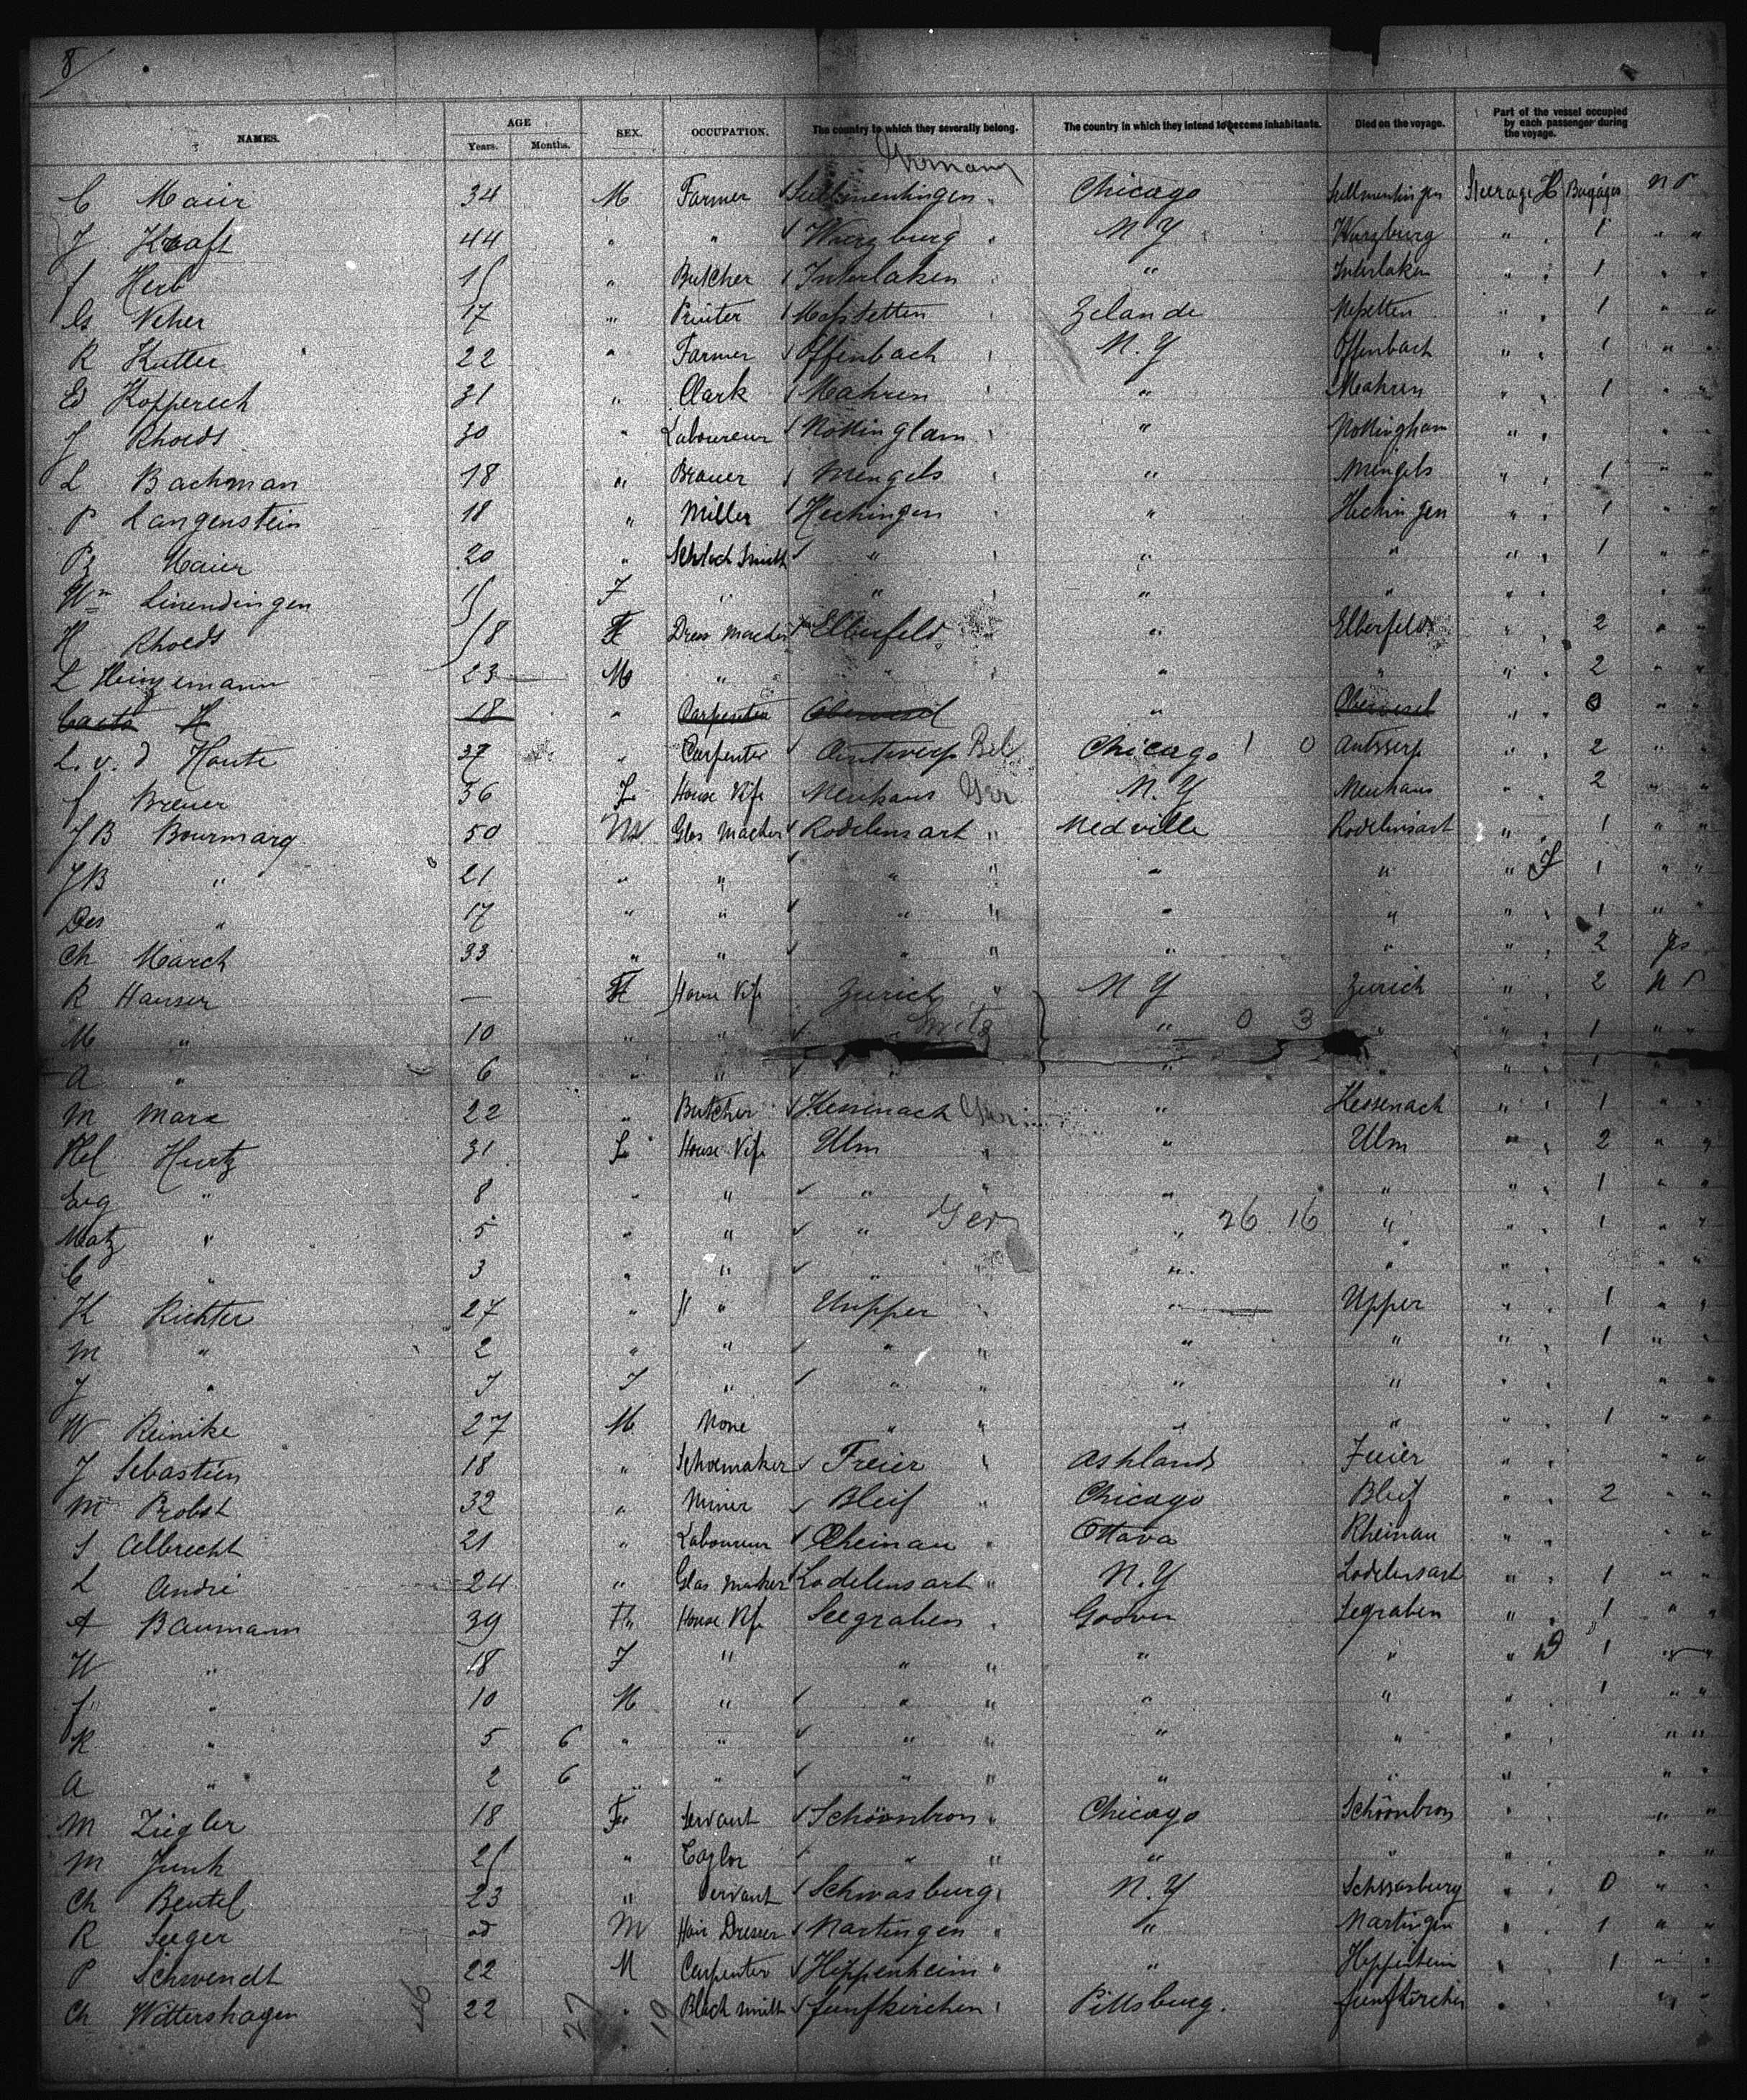 8/
NAMES. AGE Years. Months. SEX. OCCUPATION. The country to which they severally belong. The country in which they intend to become inhabitants. Died on the voyage. Part of the vessel occupied by each passenger during the voyage.
Germany
C Maier 34 M Farmer Chicago Steerage H Bagages
J Kraft 44 " " Wurzburg N Y Wurzburg " " 1 " "
f Herb 15 " Butcher Interlaken " Interlaken " " 1 " "
Gs Neher 17 " Printer Messtetten Zelande " " 1 " "
R Kutter 22 " Farmer Offenbach N.Y Offenbach " " 1 " "
Ed Kopperech 31 " Clark Mahren " Mahren " " 1 " "
J Rhoeds 30 " Laboureur Nottinglam " Nottingham " " " "
L Bachman 18 " Brauer Mengels " Mengels " " 1 " "
P Langenstein 18 " Miller Hechingen " Hechingen " " 1 " "
Maier 20 " Smith " " " " " 1 " "
Wm Linendingen 15 F " " " " " " " "
H Rhoeds 18 F Dress Macher Elberfeld " Elberfeld " " 2 " "
L Heinzemann 23 M " " " " " " 2 " "
H 18 " Carpenter Oberwesel " Oberwesel " " 0 " "
L. v. d Houte 37 " Carpenter Antwerp Bel Chicago 1 0 Antwerp " " 2 " "
f Breuer 36 F House Vife Neuhaus Ger N.Y Neuhaus " " 2 " "
JB Bourmarg 50 M Glas Macher Rodelinsart " Medville Rodelinsart " " 1 " "
JB " 21 " " " " " " " F 1 " "
Des " 17 " " " " " " " " 1 " "
Ch March 33 " " " " " " " " 2 yes
R Hauser — F House Vife Zurich " N Y Zurich " " 2
M " 10 " " " Switz " 0 3 " " " 1 " "
A " 6 " " " " " " " 1 " "
M Marx 22 " Butcher Kessenach Ger " Kessenach " " 1 " "
Hel Hurtz 31 F House Vife Ulm " " Ulm " " 2 " "
Eug " 8 " " " " " " " " 1 " "
Matz " 5 " " " Ger " 26 16 " " " 1 " "
C " 3 " " " " " " " " " "
K Richter 27 " " " Unpper " " Upper " " 1 " "
M " 2 " " " " " " " " 1 " "
J " " " " " " " " " "
W Reinike 27 M None " " " " " " 1 " "
J Sebastien 18 " Schoemaker Freier " Ashland " " " "
M Probst 32 " Miner Bleif " Chicago Bleif " " 2 " "
S Albrecht 21 " Laboureur Rheinau " Ottava Rheinau " " " "
L André 24 " Glas Maker Lodelinsart " N.Y Lodelinsart " " 1 " "
A Baumann 39 House Vife Seegraben " Seegraben " " 1 " "
W " 18 F " " " " " " 1 " "
f " 10 M " " " " " " " 1 " "
K " 5 6 " " " " " " " " " "
A " 2 6 " " " " " " " " " "
M Ziegler 18 F Servant Schöonbron " Chicago Schöonbron " " "
M Junk 25 " Taylor " " " " " " " "
Ch Beutel 23 " Servant Schwasburg " N.Y Schwasburg " " 0 " "
R Seeger M Hair Dresser Nartingen " " Nartingen " " 1 " "
P Schwendt 22 M Carpenter Heppenheim " " Heppenheim " " 1 " "
Ch Wittershagen 22 " Black smith funfkirchen " Pittsburg. funfkirchen " " " "
46 27 19